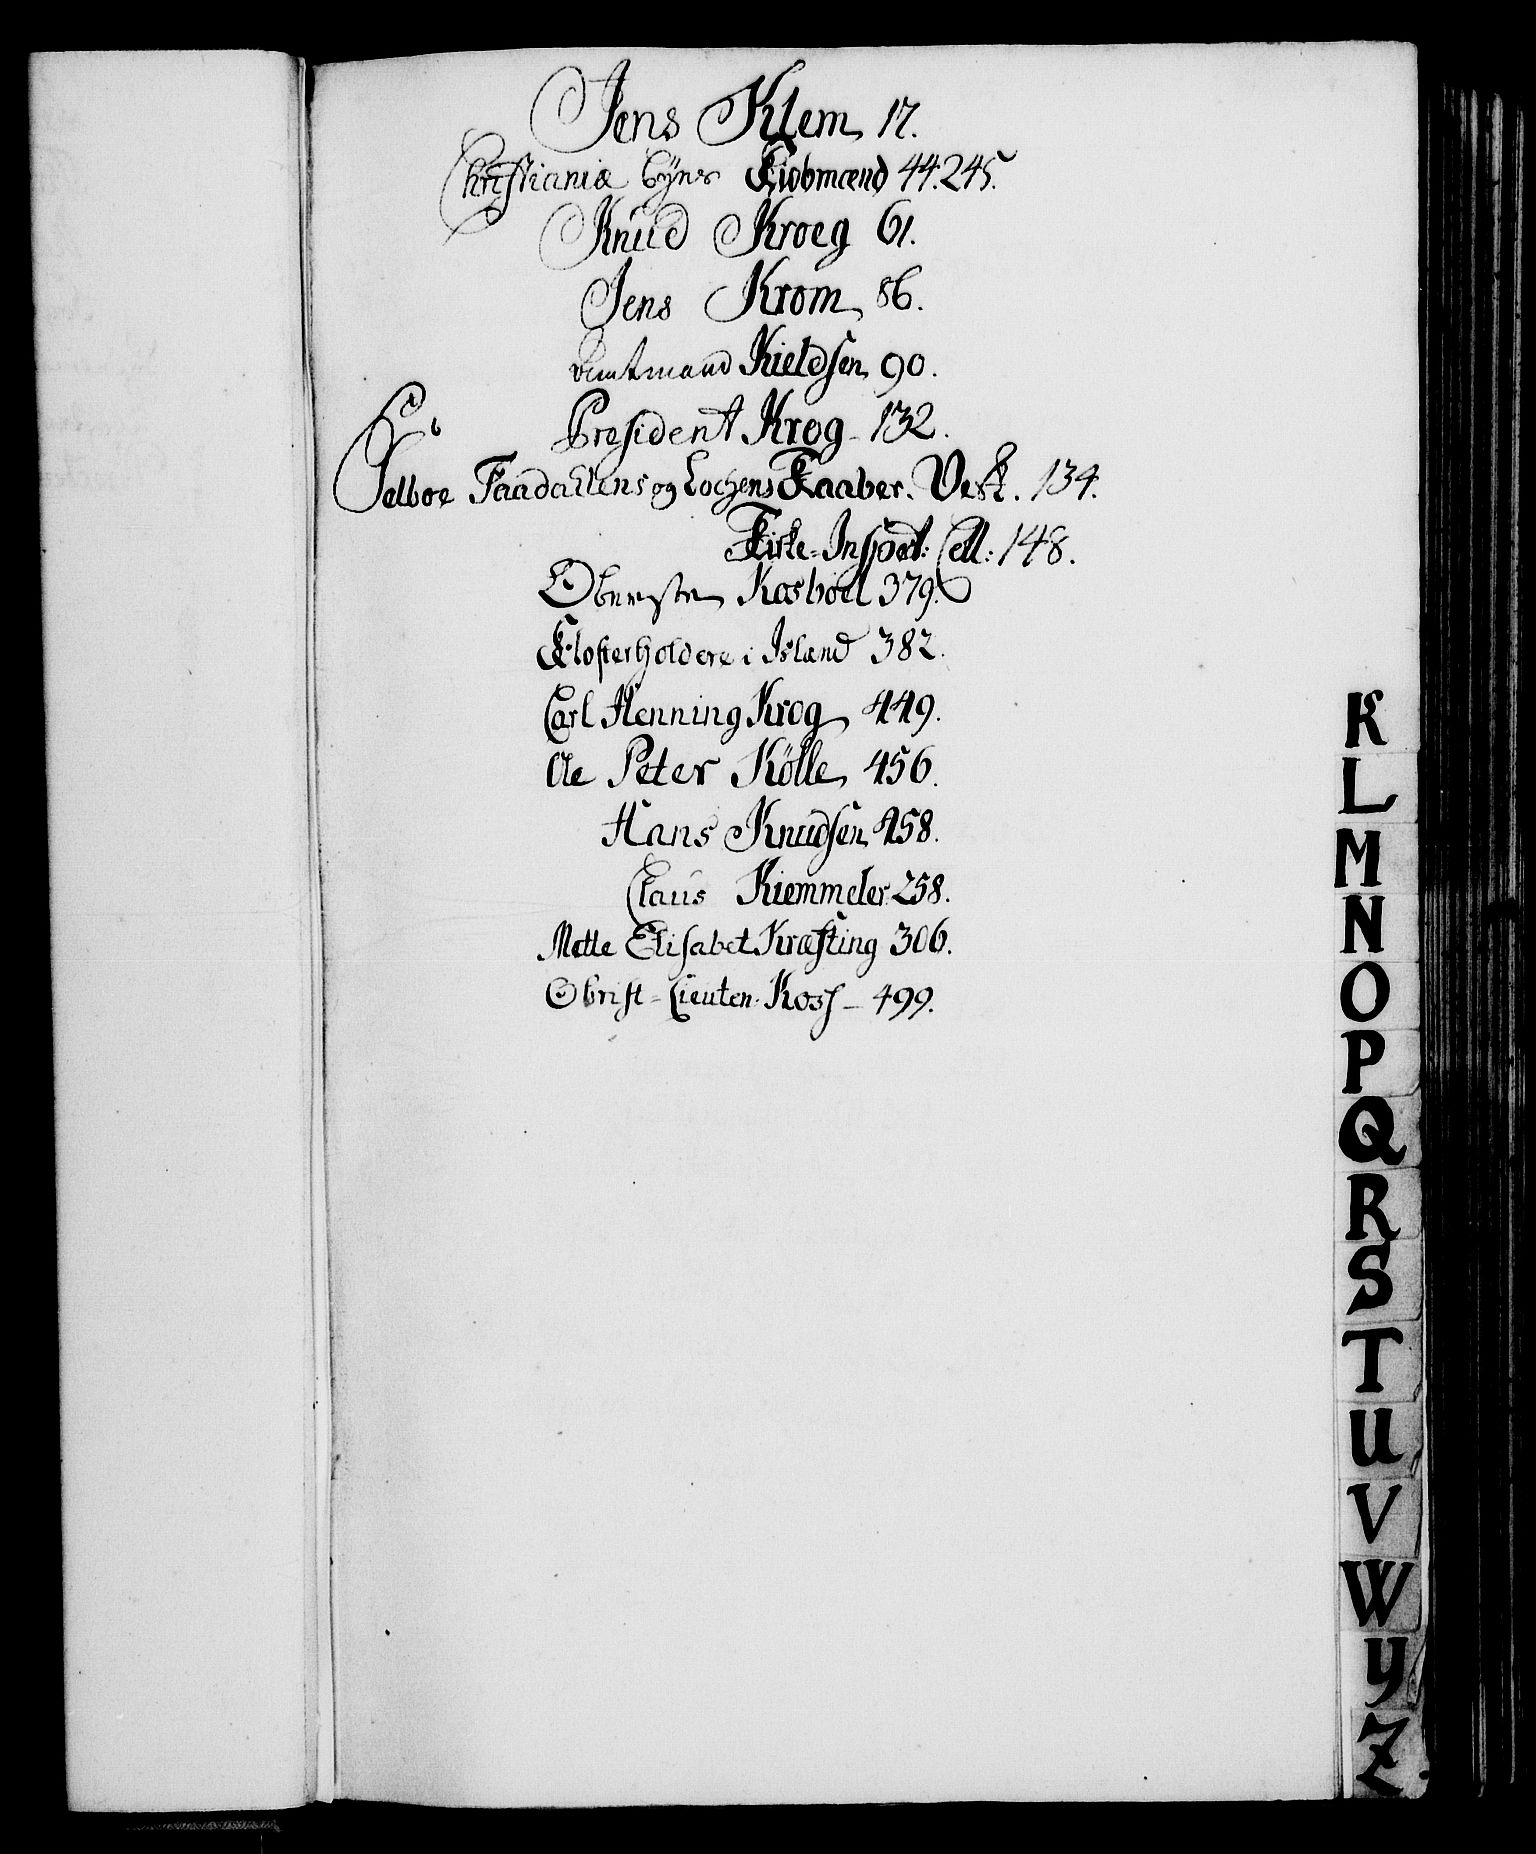 Jens Klem 17.
Christianiæ byes Kiøbmænd 44. 245.
Knud Kroeg 61.
Jens Krom 86.
Amtmand Kieldsen 90.
President Krog - 132.
Selboe Faadallens og Lochens Kaaber. Verk. 134.
Kirke-Inspect: Coll: 148.
Obersten Kaasböel 379.
Klosterholdere i Island 382.
Carl Henning Krog 449.
Ole Peter Kölle 456.
Hans Knudsen 458.
Claus Kiemmeler 258.
Mette Elisabet Kræfting 306.
Obrist-Lieuten. Koss - 499.
K
L
M
N
O
P
Q
R
S
T
U
V
W
Y
Z